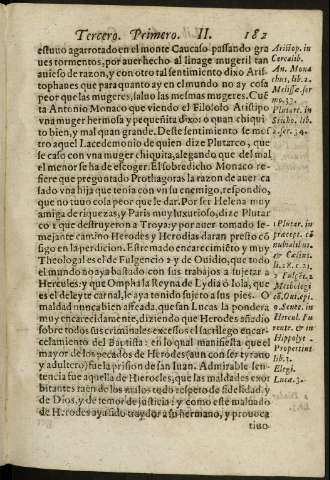 Tercero. Primero. II. 182
estuuo agarrotado en el monte Caucaso passando gra
ues tormentos, por auer hecho al linage mugeril tan
auieso de razon, y con otro tal sentimiento dixo Aris-
tophanes que para quanto ay en el mundo no ay cosa
peor que las mugeres, saluo las mesmas mugeres. Cuē
ta Antonio Monaco que viendo el Filosofo Aristipo
vna muger hermosa y pequeñita dixo: o quan chiqui
to bien, y mal quan grande. Deste sentimiento se mos
tro aquel Lacedemonio de quien dize Plutarco, que
se caso con vna muger chiquita, alegando que del mal
el menor se ha de escoger. El sobredicho Monaco re-
fiere que preguntado Prothagoras la razon de auer ca
sado vna hija que tenia con vn su enemigo, respondio,
que no tuuo cosa peor que le dar. Por ser Helena muy
amiga de riquezas, y Paris muy luxurioso, dize Plutar
co 1 que destruyeron a Troya: y por auer tomado le-
mejante camino Herodes y Herodias daran presto cō
sigo en la perdicion. Estremado encarecimiēto y muy
Theologal es el de Fulgencio 2 y de Ouidio, que todo
el mundo no aya bastado con sus trabajos a sujetar a
Hercules: y que Omphala Reyna de Lydia ò Iola, que
es el deleyte carnal, le aya tenido sujeto a sus pies. O
maldad nunca bien afeada, que san Lucas la pondera
muy encarecidamente, diziendo que Herodes añadio
sobre todos sus criminales excessos el sacrilego encar-
celamiento del Baptista: en lo qual manifiesta que el
mayor de los pecados de Herodes (aun con ser tyrano
y adultero) fue la prision de san Iuan. Admirable sen-
tencia fue aquella de Hierocles, que las maldades exor
bitantes raen de los malos todo respeto de fidelidad, y
de Dios, y de temor de justicia: y como este maluado
de Herodes aya sido traydor a su hermano, y prouoca
tiuo
Aristop. in
Cerealib.
An. Mona
chus, lib. 2.
Melissæ ser
mo. 33.
Plutarc. in
Sticho. lib.
2. ser. 34.
1 Plutar. in
præcept. cō
nubialibus.
& Cælius
li. 28. c. 21.
2 Fulgēt. 2
Mitologici
cō. Oui. epi.
9. Senec. in
Hercul. Fu
rente. & in
Hippolyt.
Propertius
lib. 3.
Elegi.
Lucæ. 3.